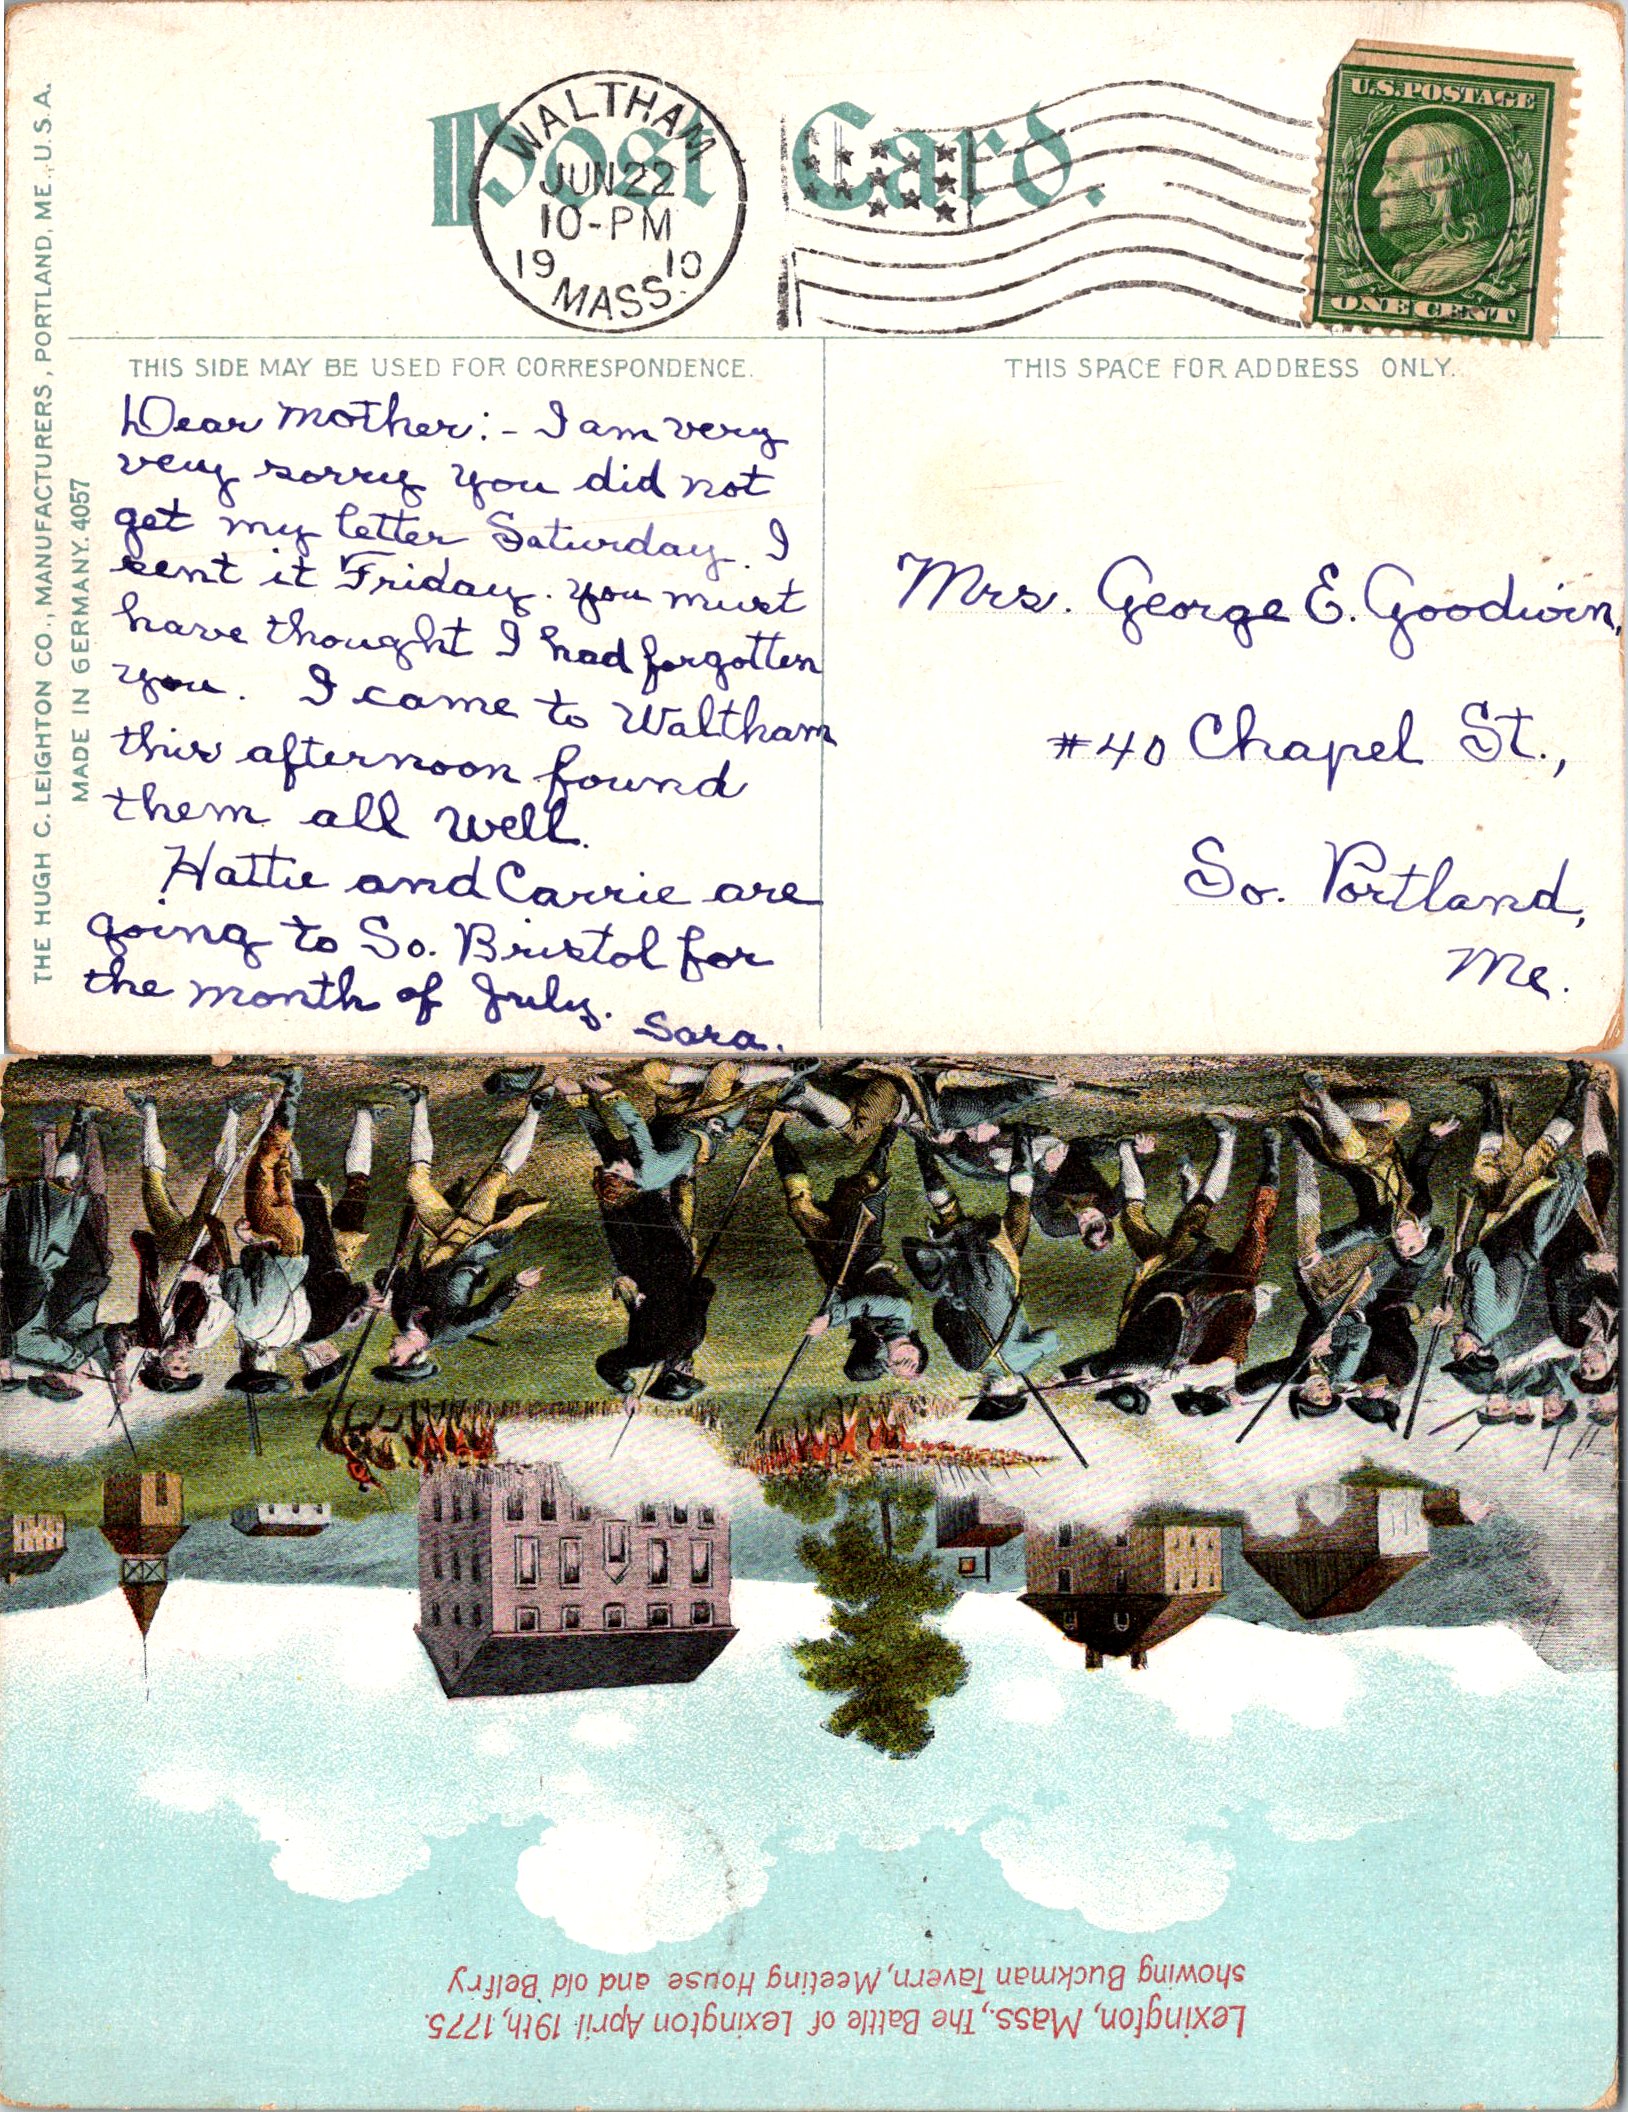 Post Card.
WALTHAM
JUN 22
10-PM
19 10
MASS.
U.S. POSTAGE
ONE CENT
THE HUGH C. LEIGHTON CO., MANUFACTURERS, PORTLAND, ME., U.S.A.
MADE IN GERMANY. 4057
THIS SIDE MAY BE USED FOR CORRESPONDENCE.
Dear Mother:- I am very
very sorry you did not
get my letter Saturday. I
sent it Friday. You must
have thought I had forgotten
you. I came to Waltham
this afternoon found
them all well.
Hattie and Carrie are
going to So. Bristol for
the month of July.
Sara.
THIS SPACE FOR ADDRESS ONLY.
Mrs. George E. Goodwin,
#40 Chapel St.,
So. Portland,
Me.
Lexington, Mass., The Battle of Lexington April 19th, 1775.
showing Buckman Tavern, Meeting House and old Belfry